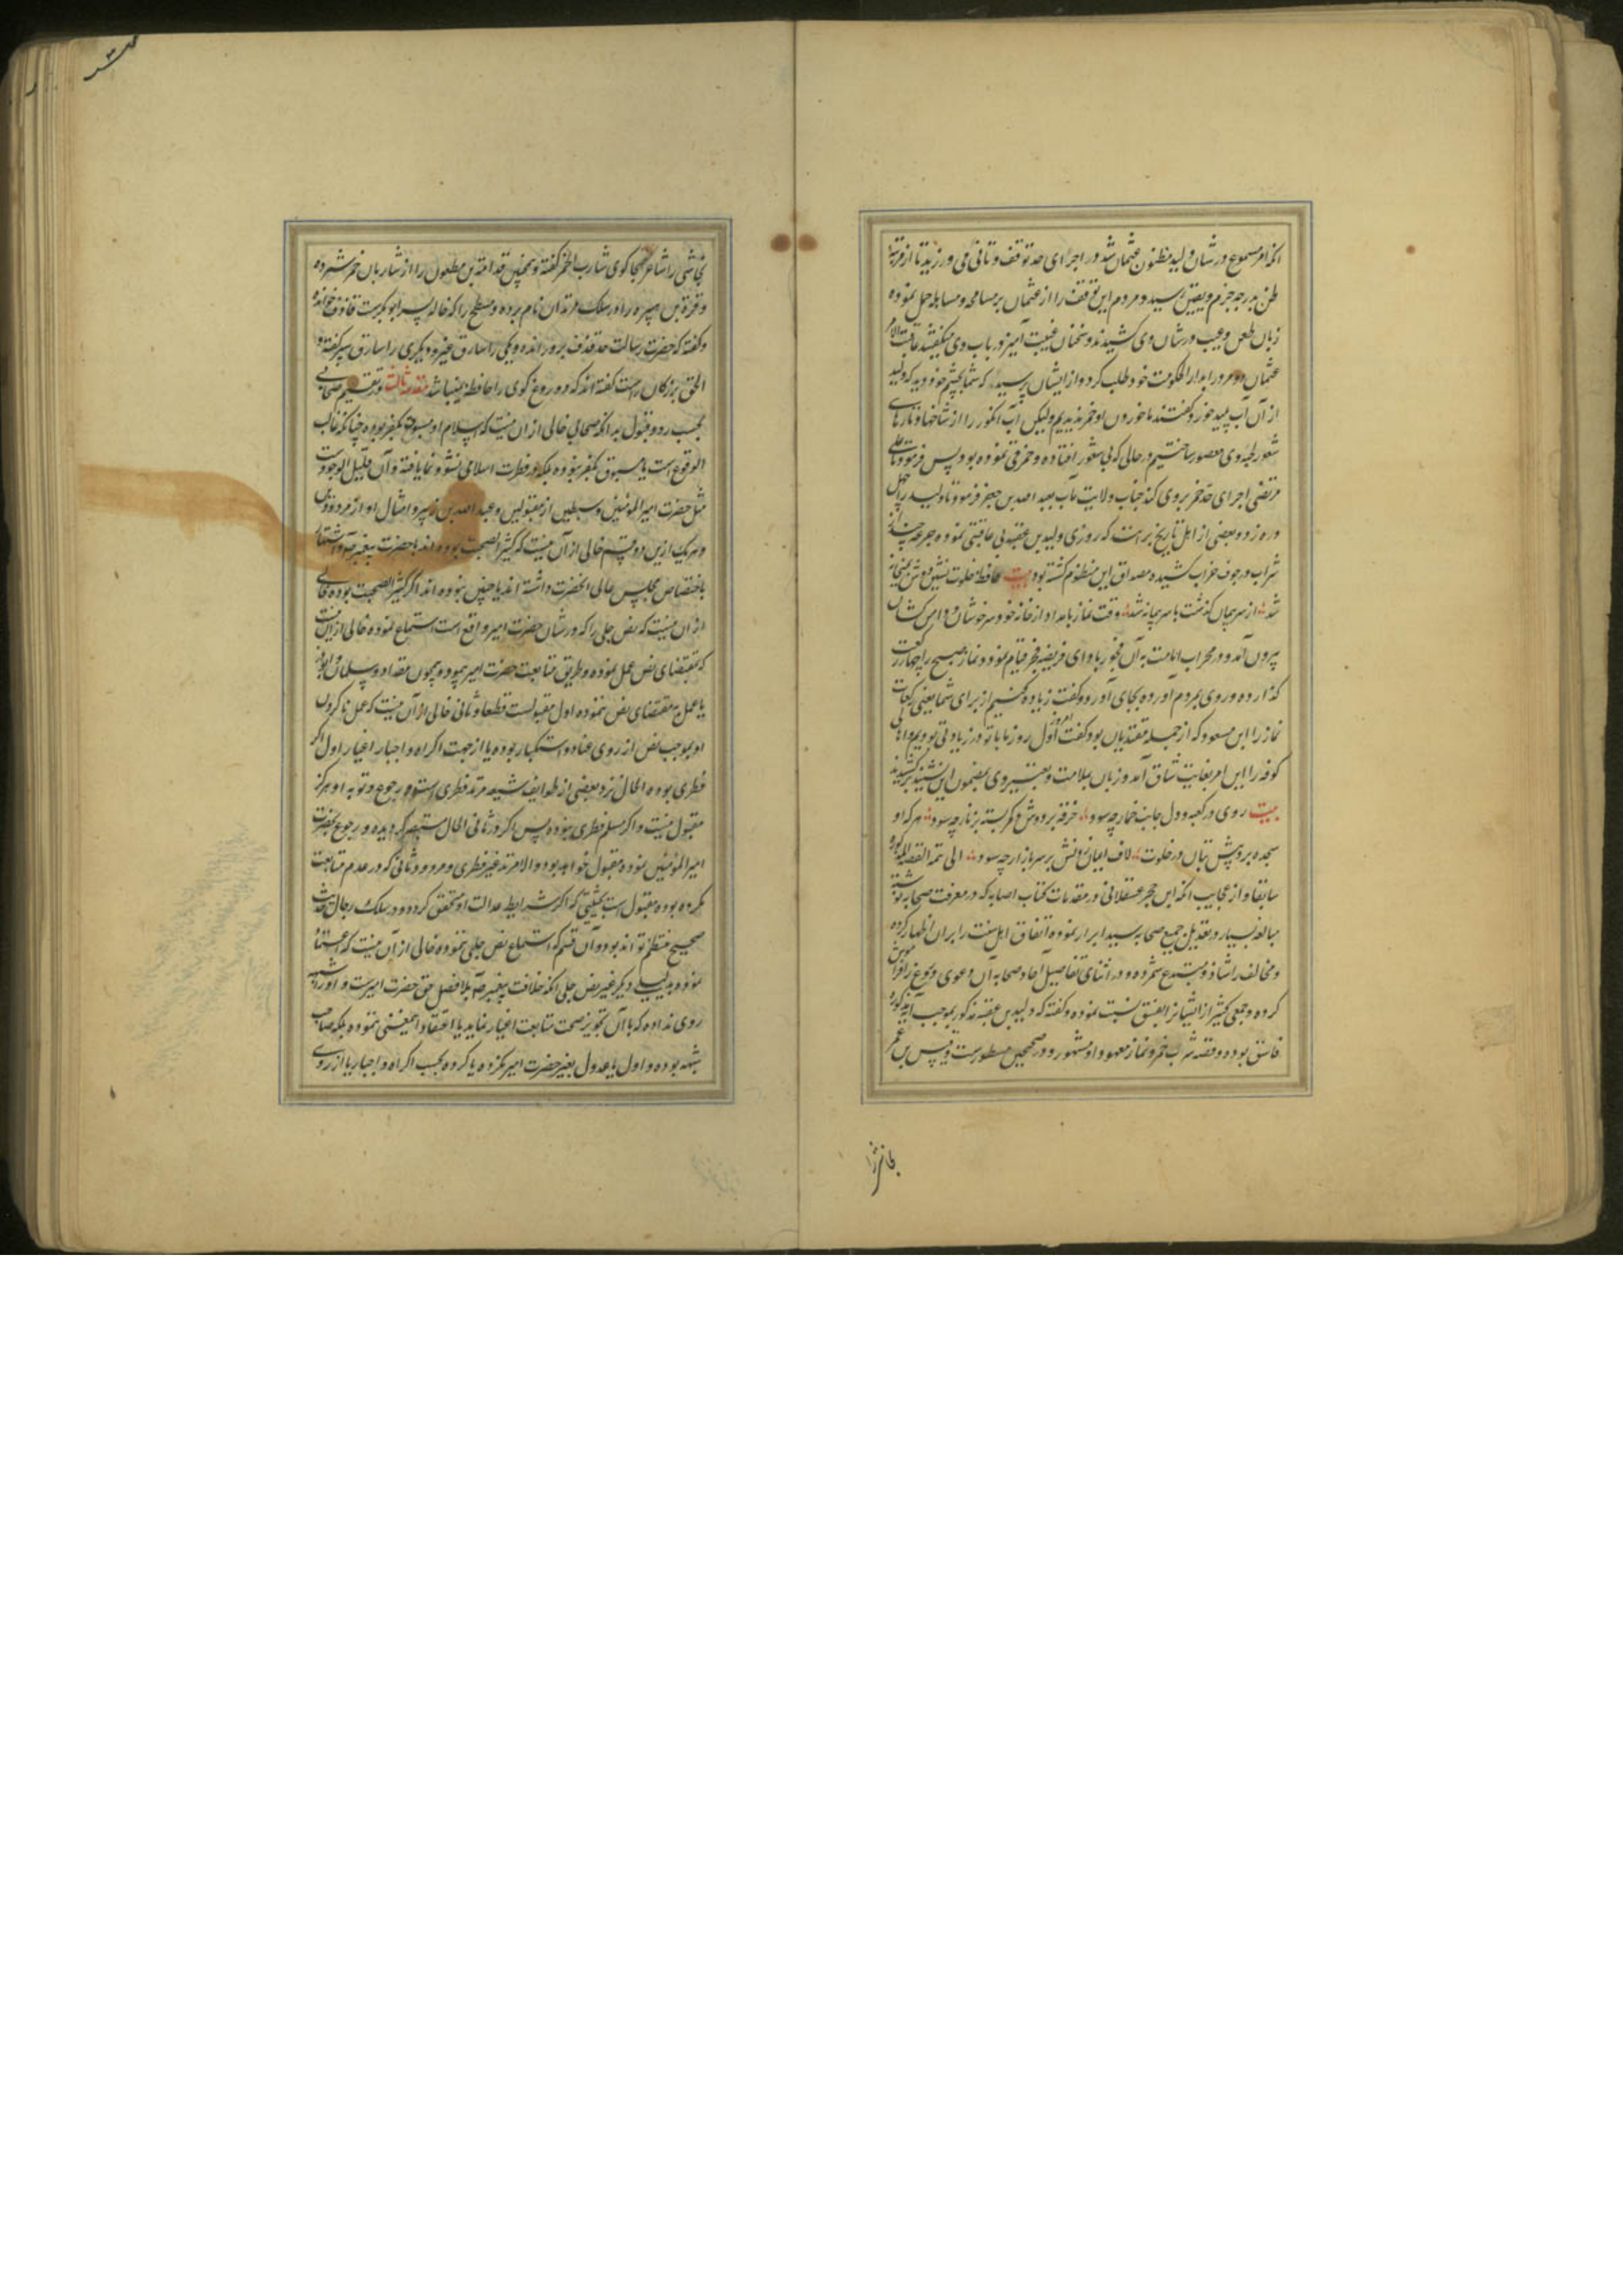 انکه امر مسموع در شان ولید مظنون عثمان شد در اجرای حد توقف و تانی می ورزید تا از مرتبهٔ
ظن بدرجه جزم و یقین رسید و مردم این توقف را از عثمان بر مسامحه و مساهله حمل نموده
زبان طعن و عیب در شان وی کشیدند و سخنان غیبت آمیز در باب وی میکفتند عاقبة الامر
عثمان دو مرد را بدار الحکومت خود طلب کرد و از ایشان پرسید که شما بچشم خود دیدید که ولید
از آن آب پلید خورد کفتند ما خوردن او خمر ندیدیم ولیکن آب انکور را از شاخها و تارهای
شعور لحیه وی معصور ساختیم در حالی که بی شعور افتاده و خمر قی نموده بود پس فرمود تا علی
مرتضی اجرای حد خمر بر وی کند جناب ولایت مآب بعبد الله بن جعفر فرمود تا ولید را چهل
دره زد و بعضی از اهل تاریخ برانند که روزی ولید بن عقبه بی عاقبتی نموده و جرعه چند از
شراب در جوف خراب کشیده مصداق این منظوم کشته بود بیت حافظ خلوت نشین دوش بمیخانه
شد از سر پیمان کذشت با سر پیمانه شد وقت نماز بامداد از خانه خود سرخوشان و دامن کشان
بیرون آمد و در محراب امامت به آن فجور باداى فریضه فجر قیام نمود و نماز صبح را چهار رکعت
کذارده و روی بمردم آورده بجای آورد و کفت زیاده کنیم از برای شما یعنی رکعات
نماز را ابن مسعود که از جمله مقتدیان بود کفت از اول روز ما با تو در زیادتی بودیم و اهالی
کوفه را این امر بغایت شاق آمد و زبان بملامت و تعییر وی بمضمون این نشید برکشیدند
بیت روی در کعبه و دل جانب خمار چه سود خرقه بر دوش و کمر بسته بزنار چه سود هر که او
سجده برد پیش بتان در خلوت لاف ایمان زدنش بر سر بازار چه سود الی تتمة القصة المذکورة
سابقا و از عجایب انکه ابن حجر عسقلانی در مقدمات کتاب اصابه که در معرفت صحابه نوشته
مبالغه بسیار در تعدیل جمیع صحابه سید ابرار نموده و اتفاق اهل سنت را بران اظهار کرده
و مخالف را شاذ و مبتدع شمرده و در اثنای تفاصیل آحاد صحابه آن دعوی دروغ را فراموش
کرده و جمعی کثیر از ایشانرا بفسق نسبت نموده و کفته که ولید بن عقبه مذکور بموجب آیه مذکوره
فاسق بوده و قصه شرب خمر و نماز معهود او مشهور و در صحیحین مسطورست و قیس بن عمر
نجاشی را
نجاشی را شاعر هجا کوی شارب الخمر کفته و همچنین قدامة بن مظعون را از شاربان خمر شمرده
و قرة بن هبیره را در سلک مرتدان نام برده و مسطح را که خاله پسر ابوبکرست قاذف خوانده
و کفته که حضرت رسالت حد قذف برو رانده و یکی را سارق عنز و دیکری را سارق بعیر کفته و
الحق بزرکان راست کفته اند که دروغ کوی را حافظه نمیباشد مقدمه ثالث در تقسیم صحابی
بحسب رد و قبول بدانکه صحابی خالی از آن نیست که اسلام او مسبوق بکفر بوده چنانکه غالب
الوقوع است یا مسبوق بکفر نبوده بلکه در فطرت اسلامی نشو و نما یافته و آن قلیل الوجودست
مثل حضرت امیر المؤمنین و سبطین از مقبولین و عبد الله بن زبیر و امثال او از مردودین
و هر یک ازین دو قسم خالی از آن نیست که کثیر الصحبت بوده اند با حضرت پیغمبر ص و اشتهار
باختصاص مجلس عالی انحضرت داشته اند یا چنین نبوده اند اکر کثیر الصحبت بوده خالی
از آن نیست که نص جلی را که در شان حضرت امیر واقع است استماع نموده خالی ازین نیست
که بمقتضای نص عمل نموده و طریق متابعت حضرت امیر پیموده همچون مقداد و سلمان و ابوذر
یا عمل بمقتضای نص ننموده اول مقبولست قطعا و ثانی خالی از آن نیست که عمل نا کردن
او بموجب نص از روی عناد و استکبار بوده یا از جهت اکراه و اجبار اغیار اول اکر
فطری بوده الحال نزد بعضی از طوایف شیعه مرتد فطری است و رجوع و توبه او هرکز
مقبول نیست و اکر مسلم فطری نبوده پس اکر در ثانی الحال مستبصر کردیده و رجوع بحضرت
امیر المؤمنین نموده مقبول خواهد بود و الا مرتد غیر فطری و مردود و ثانی که در عدم متابعت
مکره بوده مقبول است بحیثیتی که اکر شرایط عدالت او متحقق کردد و در سلک رجال حدیث
صحیح منتظم تواند بود و آن قسم که استماع نص جلی ننموده خالی از آن نیست که اعتقاد
نموده بدلیلی دیکر غیر نص جلی انکه خلافت پیغمبر ص بلافصل حق حضرت امیرست و او را شبهه
روی نداده که با آن تجویز صحت متابعت اغیار نماید یا اعتقاد اینمعنی ننموده بلکه صاحب
شبهه بوده و اول یا عدول بغیر حضرت امیر نکرده یا کرده بحسب اکراه و اجبار یا از روی